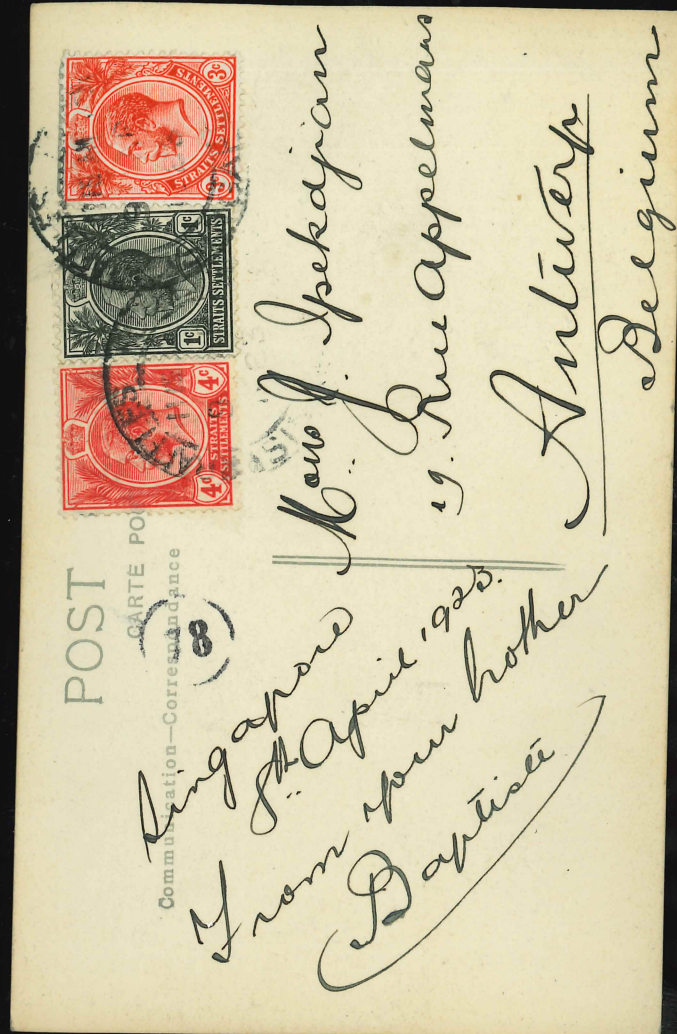 POST
CARTE PO
Communication—Correspondance
3c
STRAITS SETTLEMENTS
3c
1c
STRAITS SETTLEMENTS
1c
4c
STRAITS
SETTLEMENTS
4c
8
Singapore
8th April 1923.
From your brother
Baptiste
Mons J. Ipekdjian
19. Rue Appelmans
Antwerp
Belgium